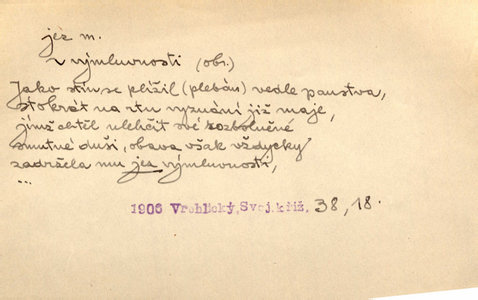 jez m.
v výmluvnosti (obr.)
Jako stín se plížil (plebán) vedle panstva,
stokrát na rtu vyznání již maje,
jímž chtěl ulehčit své rozbolněné
smutné duši, obava však vždycky
zadržela mu jez výmluvnosti,
...
1906 Vrchlický, Svoj.kříž, 38, 18.